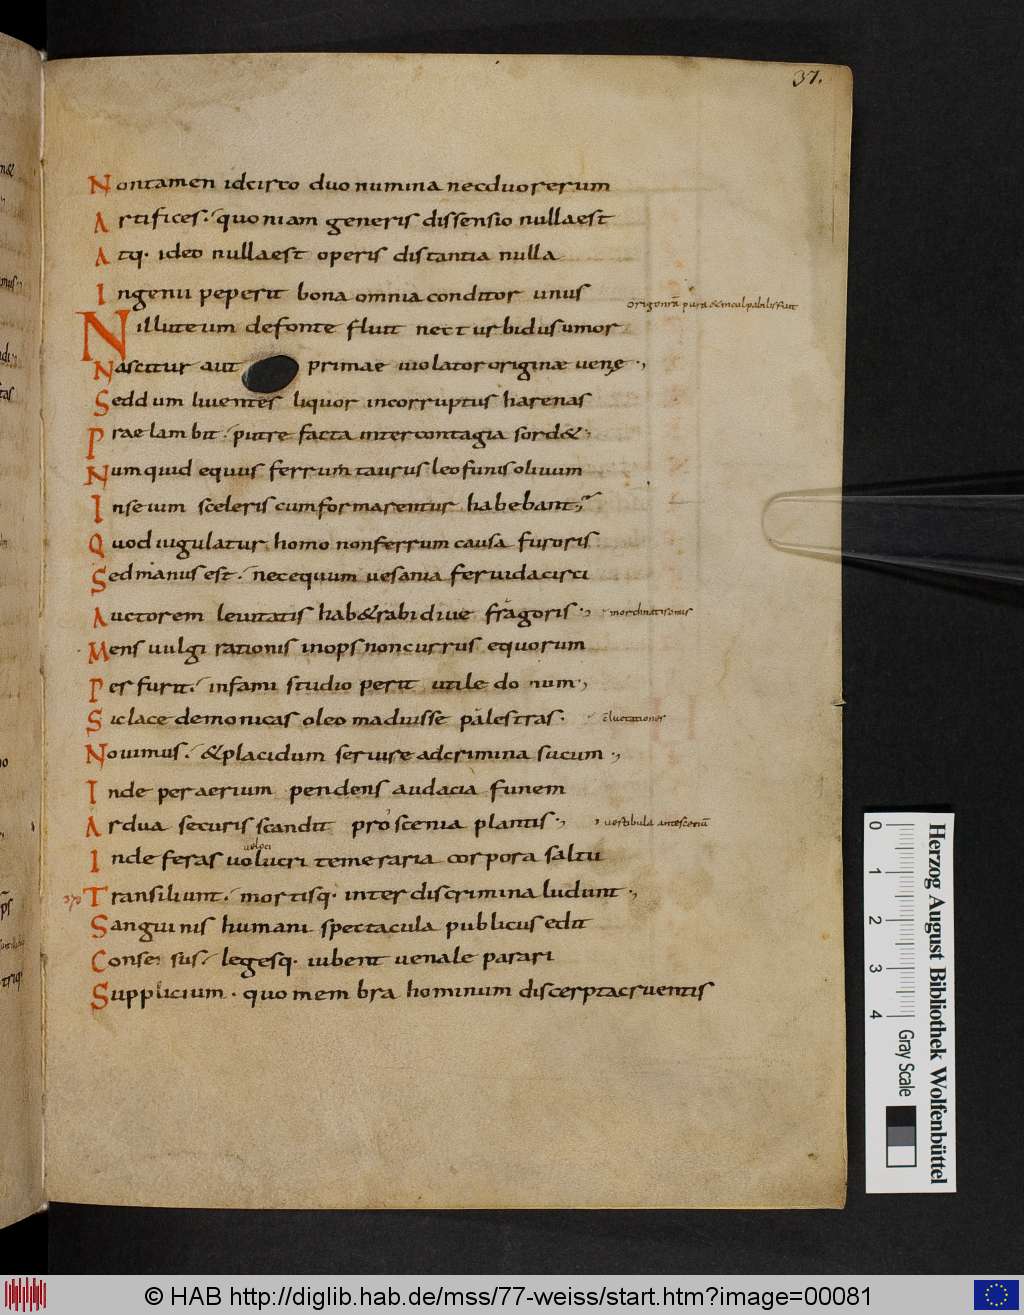 37.
Non tamen idcirco duo numina nec duo rerum
Artifices. quoniam generis dissensio nulla est
Atq. ideo nulla est operis distantia nulla
Ingenii peperit bona omnia conditor unus
Nil luteum de fonte fluit nec turbidus umor
Nascitur aut primae violator originæ venę.,
Sed dum liventes liquor incorruptus harenas
Praelambit. putre facta inter contagia sord&.,
Numquid equus ferrum taurus leo funis olivum
In se vim sceleris cum formarentur habebant;
Quod iugulatur homo non ferrum causa furoris
Sed manus est. nec equum vesania fervida circi
Auctorem levitatis hab& rabidive fragoris.,
Mens vulgi rationis inops non currus equorum
Per furit. infami studio perit utile donum.,
Sic lacedemonicas oleo maduisse palestras.
Novimus. & placidum servire ad crimina sucum.,
Inde per aerium pendens audacia funem
Ardua securis scandit proscenia plantis., vestibula ante scenā
veloci
Inde feras volucri temeraria corpora saltu
370 Transiliunt. mortisq. inter discrimina ludunt.,
Sanguinis humani spectacula publicus edit
Consensus. legesq. iubent venale parari
Supplicium. quo membra hominum discerpta cruentis
Herzog August Bibliothek Wolfenbüttel
0 1 2 3 4 Gray Scale
© HAB http://diglib.hab.de/mss/77-weiss/start.htm?image=00081